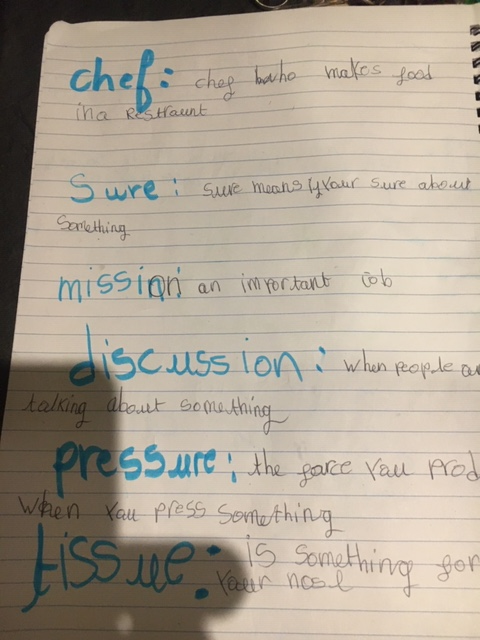 chef: chef who makes food
in a Restraunt
Sure: sure means if your sure about
Something
mission: an important job
discussion: when people
talking about something
pressure: the force you prod
when you press something
tissue: is something for
your nose